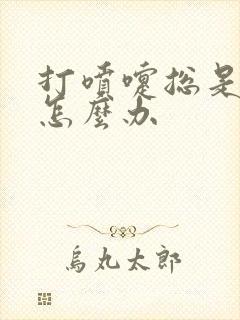 打噴嚏總是
怎麼办
烏丸太郎